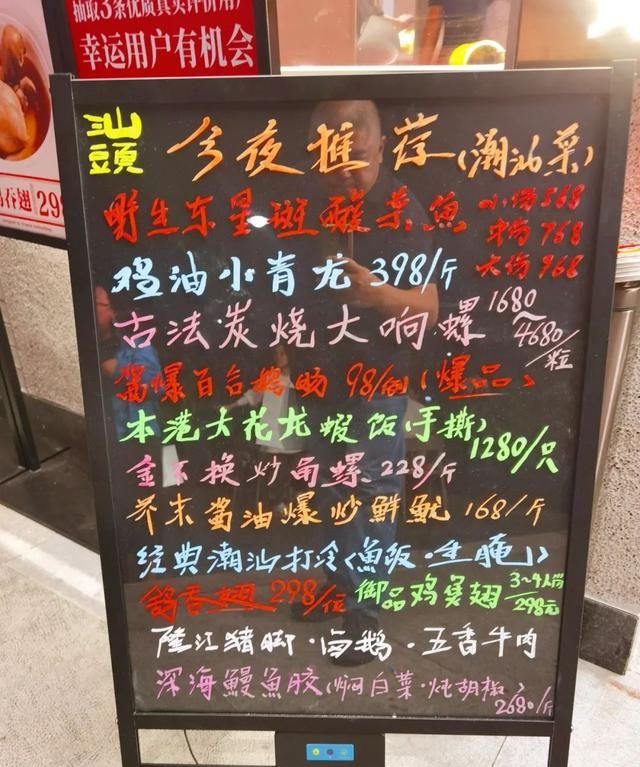 抽取3条优质真实评价用户
幸运用户有机会
吞翅 29
汕頭 今夜推荐(潮汕菜)
野生东星斑酸菜魚 小份568
中份768
大份968
鸡油小青龙 398/斤
古法炭烧大响螺 1680~4680/粒
酱爆百合鹅肠 98/例(爆品)
本港大花龙蝦饭(手撕) 1280/只
金不换炒角螺 228/斤
芥末酱油爆炒鮮魷 168/斤
经典潮汕打冷(魚饭·生腌)
鸽吞翅 298/位 御品鸡煲翅 3~4人份 298元
隆江猪脚·卤鹅·五香牛肉
深海鰻魚胶(焖白菜·炖胡椒) 2680/斤